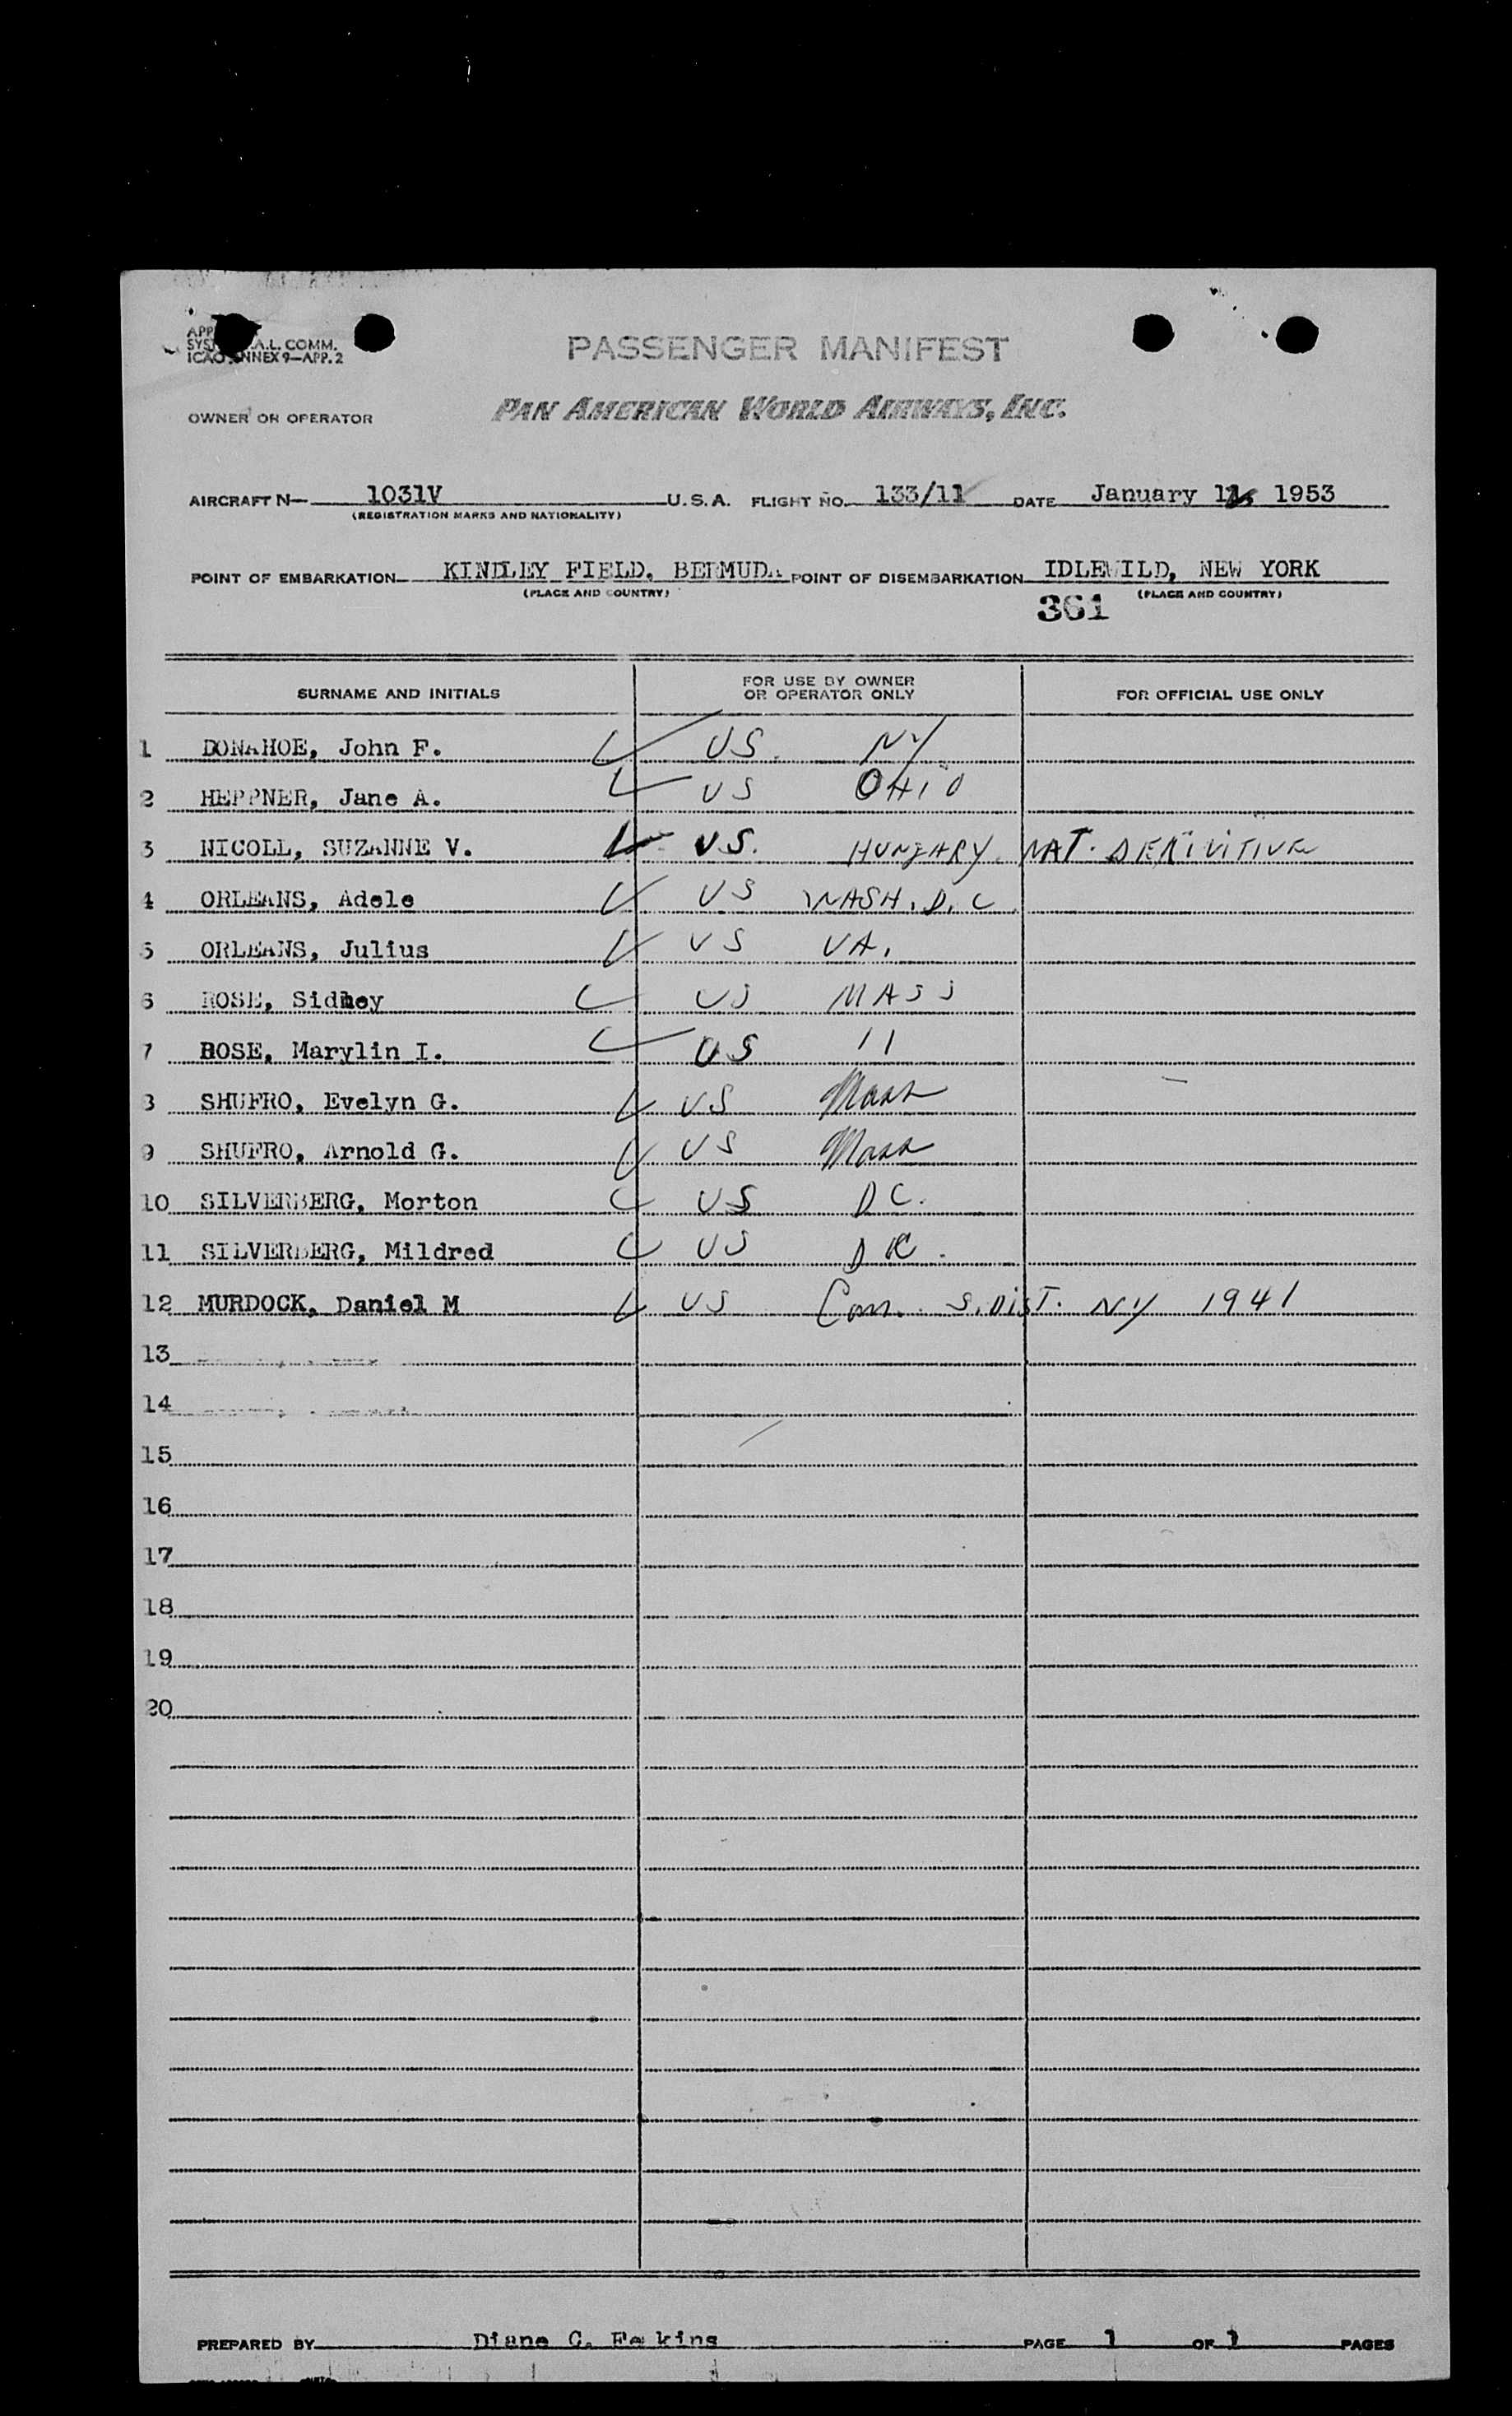 A.L. COMM.
ICAO ANNEX 9—APP. 2
PASSENGER MANIFEST
OWNER OR OPERATOR PAN AMERICAN WORLD AIRWAYS, INC.
AIRCRAFT N— 1031V U.S.A. FLIGHT NO. 133/11 DATE January 1953
(REGISTRATION MARKS AND NATIONALITY)
POINT OF EMBARKATION KINDLEY FIELD, BERMUDA POINT OF DISEMBARKATION IDLEWILD, NEW YORK
(PLACE AND COUNTRY) (PLACE AND COUNTRY)
361
SURNAME AND INITIALS FOR USE BY OWNER OR OPERATOR ONLY FOR OFFICIAL USE ONLY
1 DONAHOE, John F. US. NY
2 HEPPNER, Jane A. US OHIO
3 NICOLL, SUZANNE V. US. HUNGARY. NAT. DERIVITIVE
4 ORLEANS, Adele US WASH. D. C
5 ORLEANS, Julius US VA.
6 ROSE, Sidney US MASS
7 ROSE, Marylin I. US 11
8 SHUFRO, Evelyn G. US Mass
9 SHUFRO, Arnold G. US Mass
10 SILVERBERG, Morton US DC.
11 SILVERBERG, Mildred US DC.
12 MURDOCK, Daniel M US S. DIST. NY 1941
13
14
15
16
17
18
19
20
PREPARED BY Diane C. PAGE 1 OF 1 PAGES